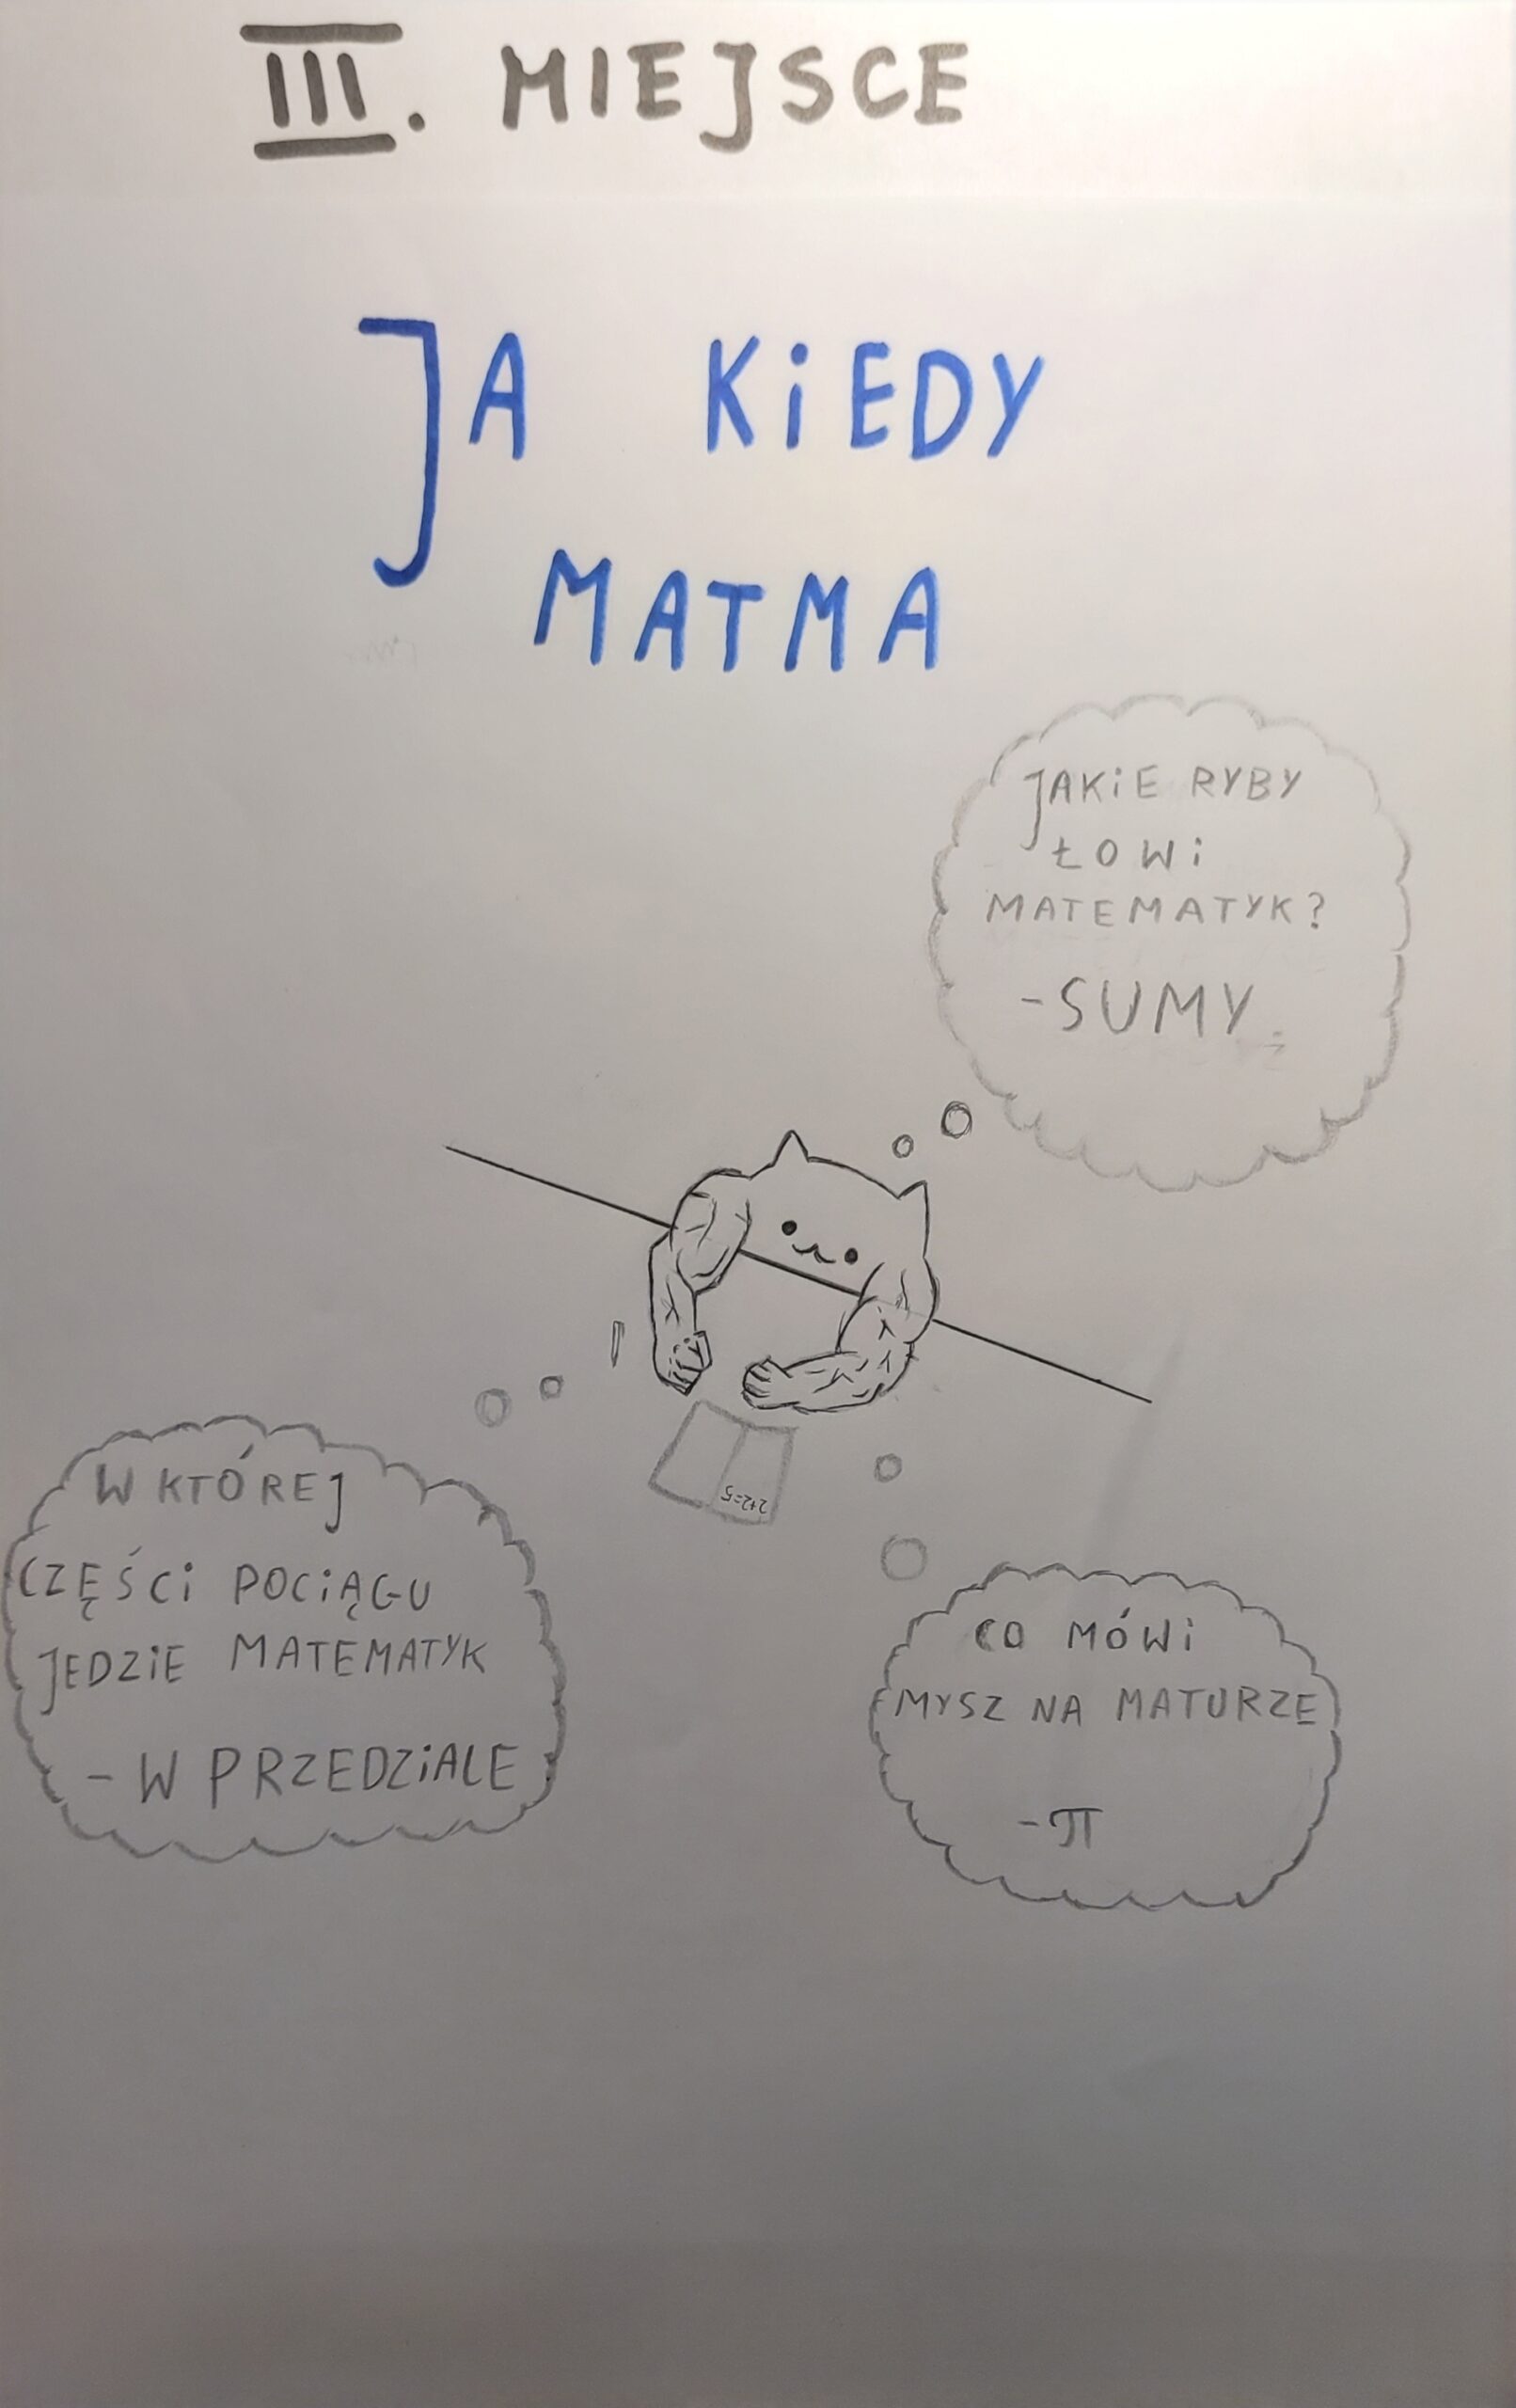 III. MIEJSCE
JA KiEDY
MATMA
JAKiE RYBY
ŁOWi
MATEMATYK?
-SUMY
2+2=5
W KTÓREJ
CZĘŚCi POCiĄGU
JEDZiE MATEMATYK
- W PRZEDZiALE
CO MÓWi
MYSZ NA MATURZE
-π